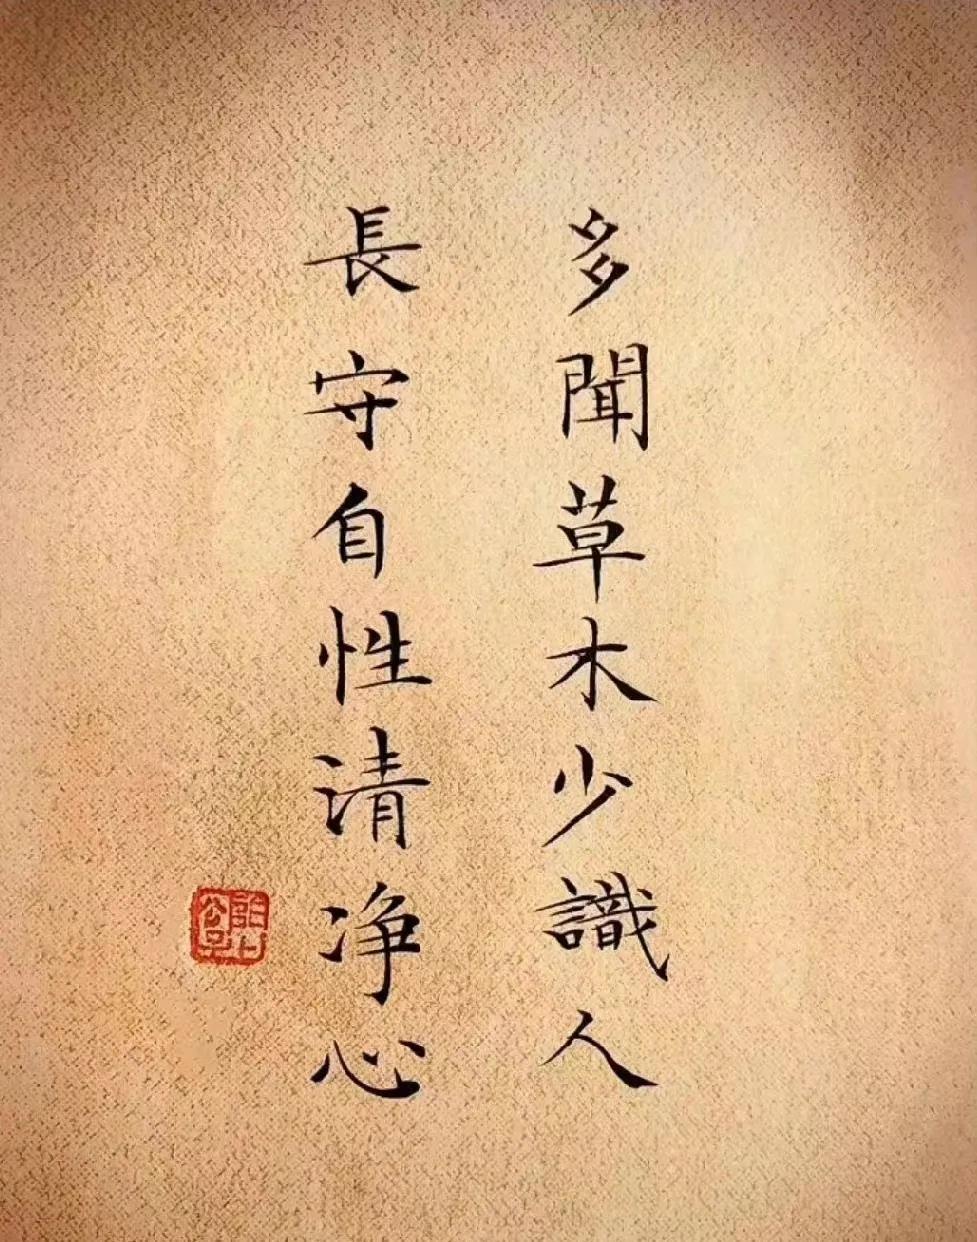 多聞草木少識人
長守自性清净心